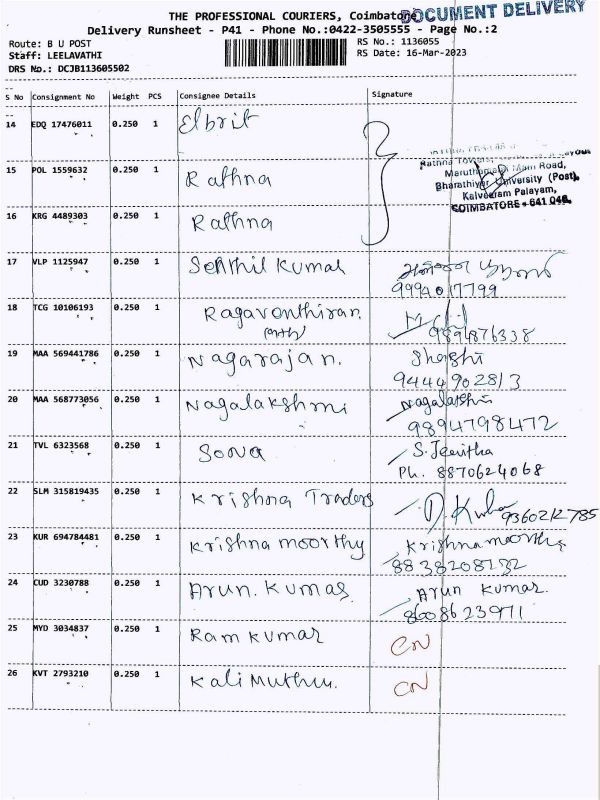 THE PROFESSIONAL COURIERS, Coimbatore
DOCUMENT DELIVERY
Delivery Runsheet - P41 - Phone No.:0422-3505555 - Page No.:2
Route: B U POST
RS No.: 1136055
Staff: LEELAVATHI
RS Date: 16-Mar-2023
DRS No.: DCJB113605502
S No Consignment No Weight PCS Consignee Details Signature
14 EDQ 17476011 0.250 1 Elbrit
15 POL 1559632 0.250 1 Rathna
Rathna Towers,
Maruthamalai Main Road,
Bharathiyar University (Post),
Kalveeram Palayam,
COIMBATORE - 641 046.
16 KRG 4489303 0.250 1 Rathna
17 VLP 1125947 0.250 1 Senthil Kumar
9994017799
18 TCG 10106193 0.250 1 Ragaventhiran
9894876338
19 MAA 569441786 0.250 1 Nagarajan. Shashi
9444902813
20 MAA 568773056 0.250 1 Nagalakshmi Nagalakshmi
9894798472
21 TVL 6323568 0.250 1 Sona S. Jeevitha
Ph. 8870624068
22 SLM 315819435 0.250 1 Krishna Traders
9360212785
23 KUR 694784481 0.250 1 Krishna moorthy Krishna moorthy
8838208232
24 CUD 3230788 0.250 1 Arun. Kumar Arun Kumar.
8608623971
25 MYD 3034837 0.250 1 Ram Kumar CN
26 KVT 2793210 0.250 1 Kali Muthu. CN